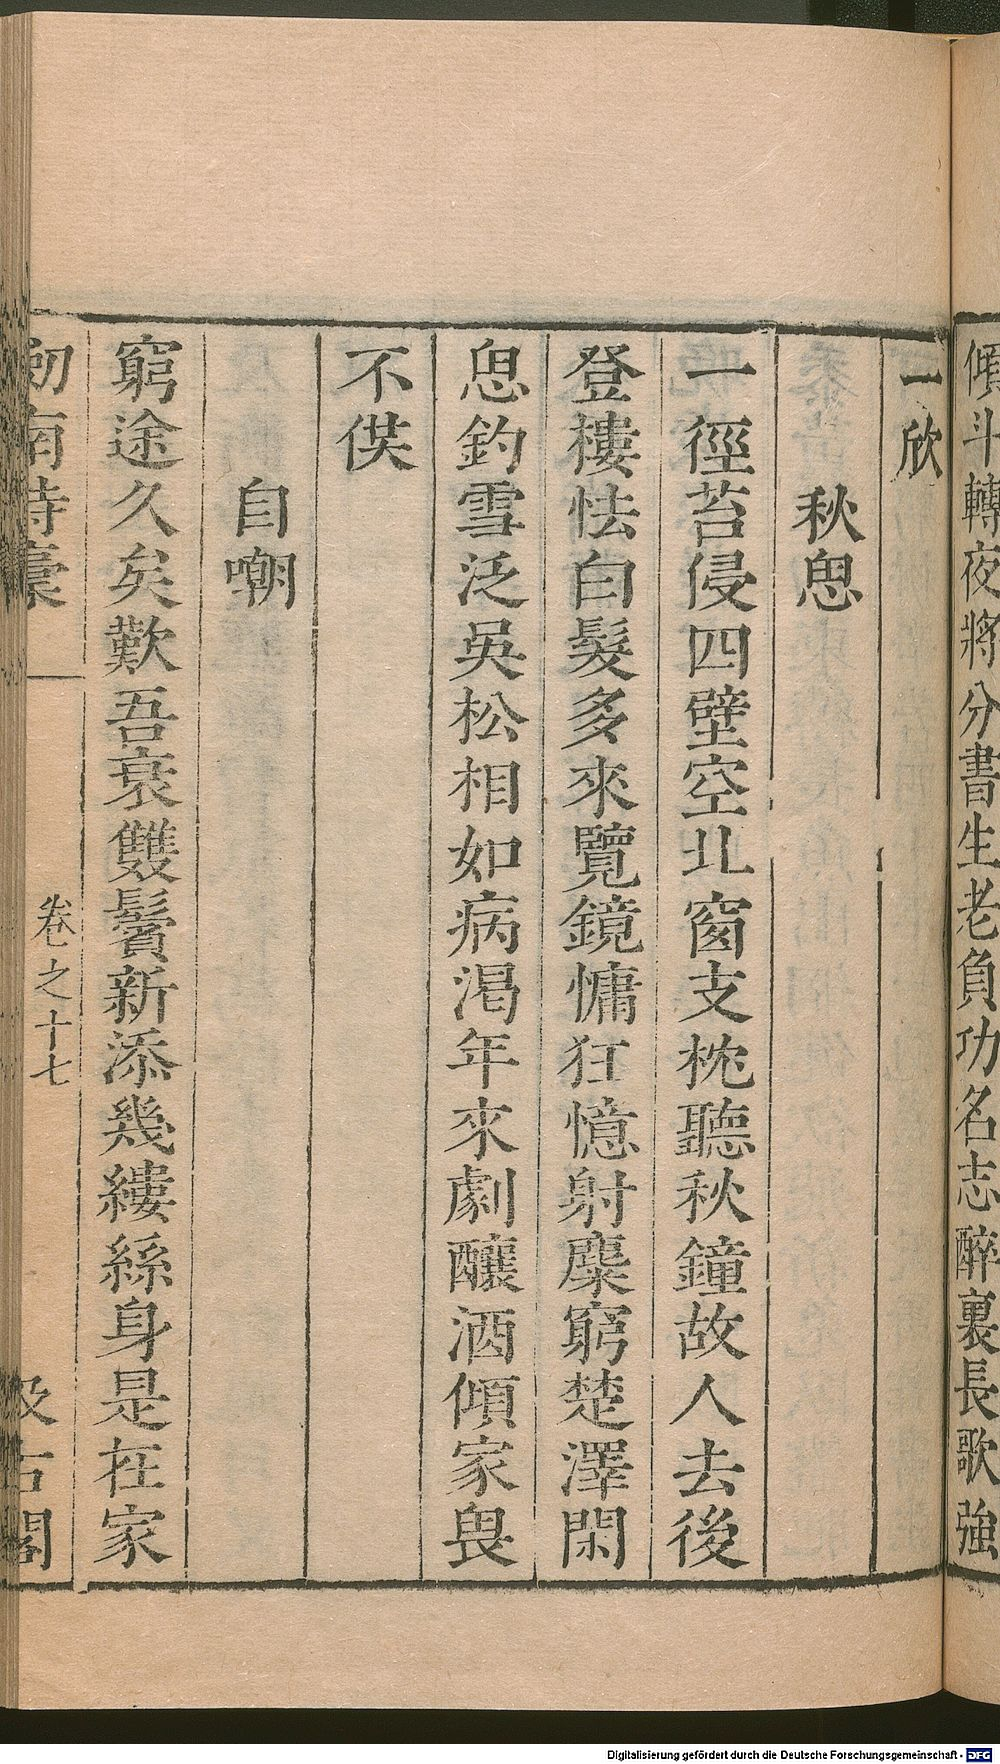 傾斗轉夜將分書生老負功名志醉裏長歌強
一欣
秋思
一徑苔侵四壁空北窗支枕聽秋鐘故人去後
登樓怯白髮多來覽鏡慵狂憶射麋窮楚澤閑
思釣雪泛吳松相如病渴年來劇釀酒傾家畏
不供
自嘲
窮途久矣歎吾衰雙鬢新添幾縷絲身是在家
劒南詩稾
卷之十七
汲古閣
Digitalisierung gefördert durch die Deutsche Forschungsgemeinschaft - DFG